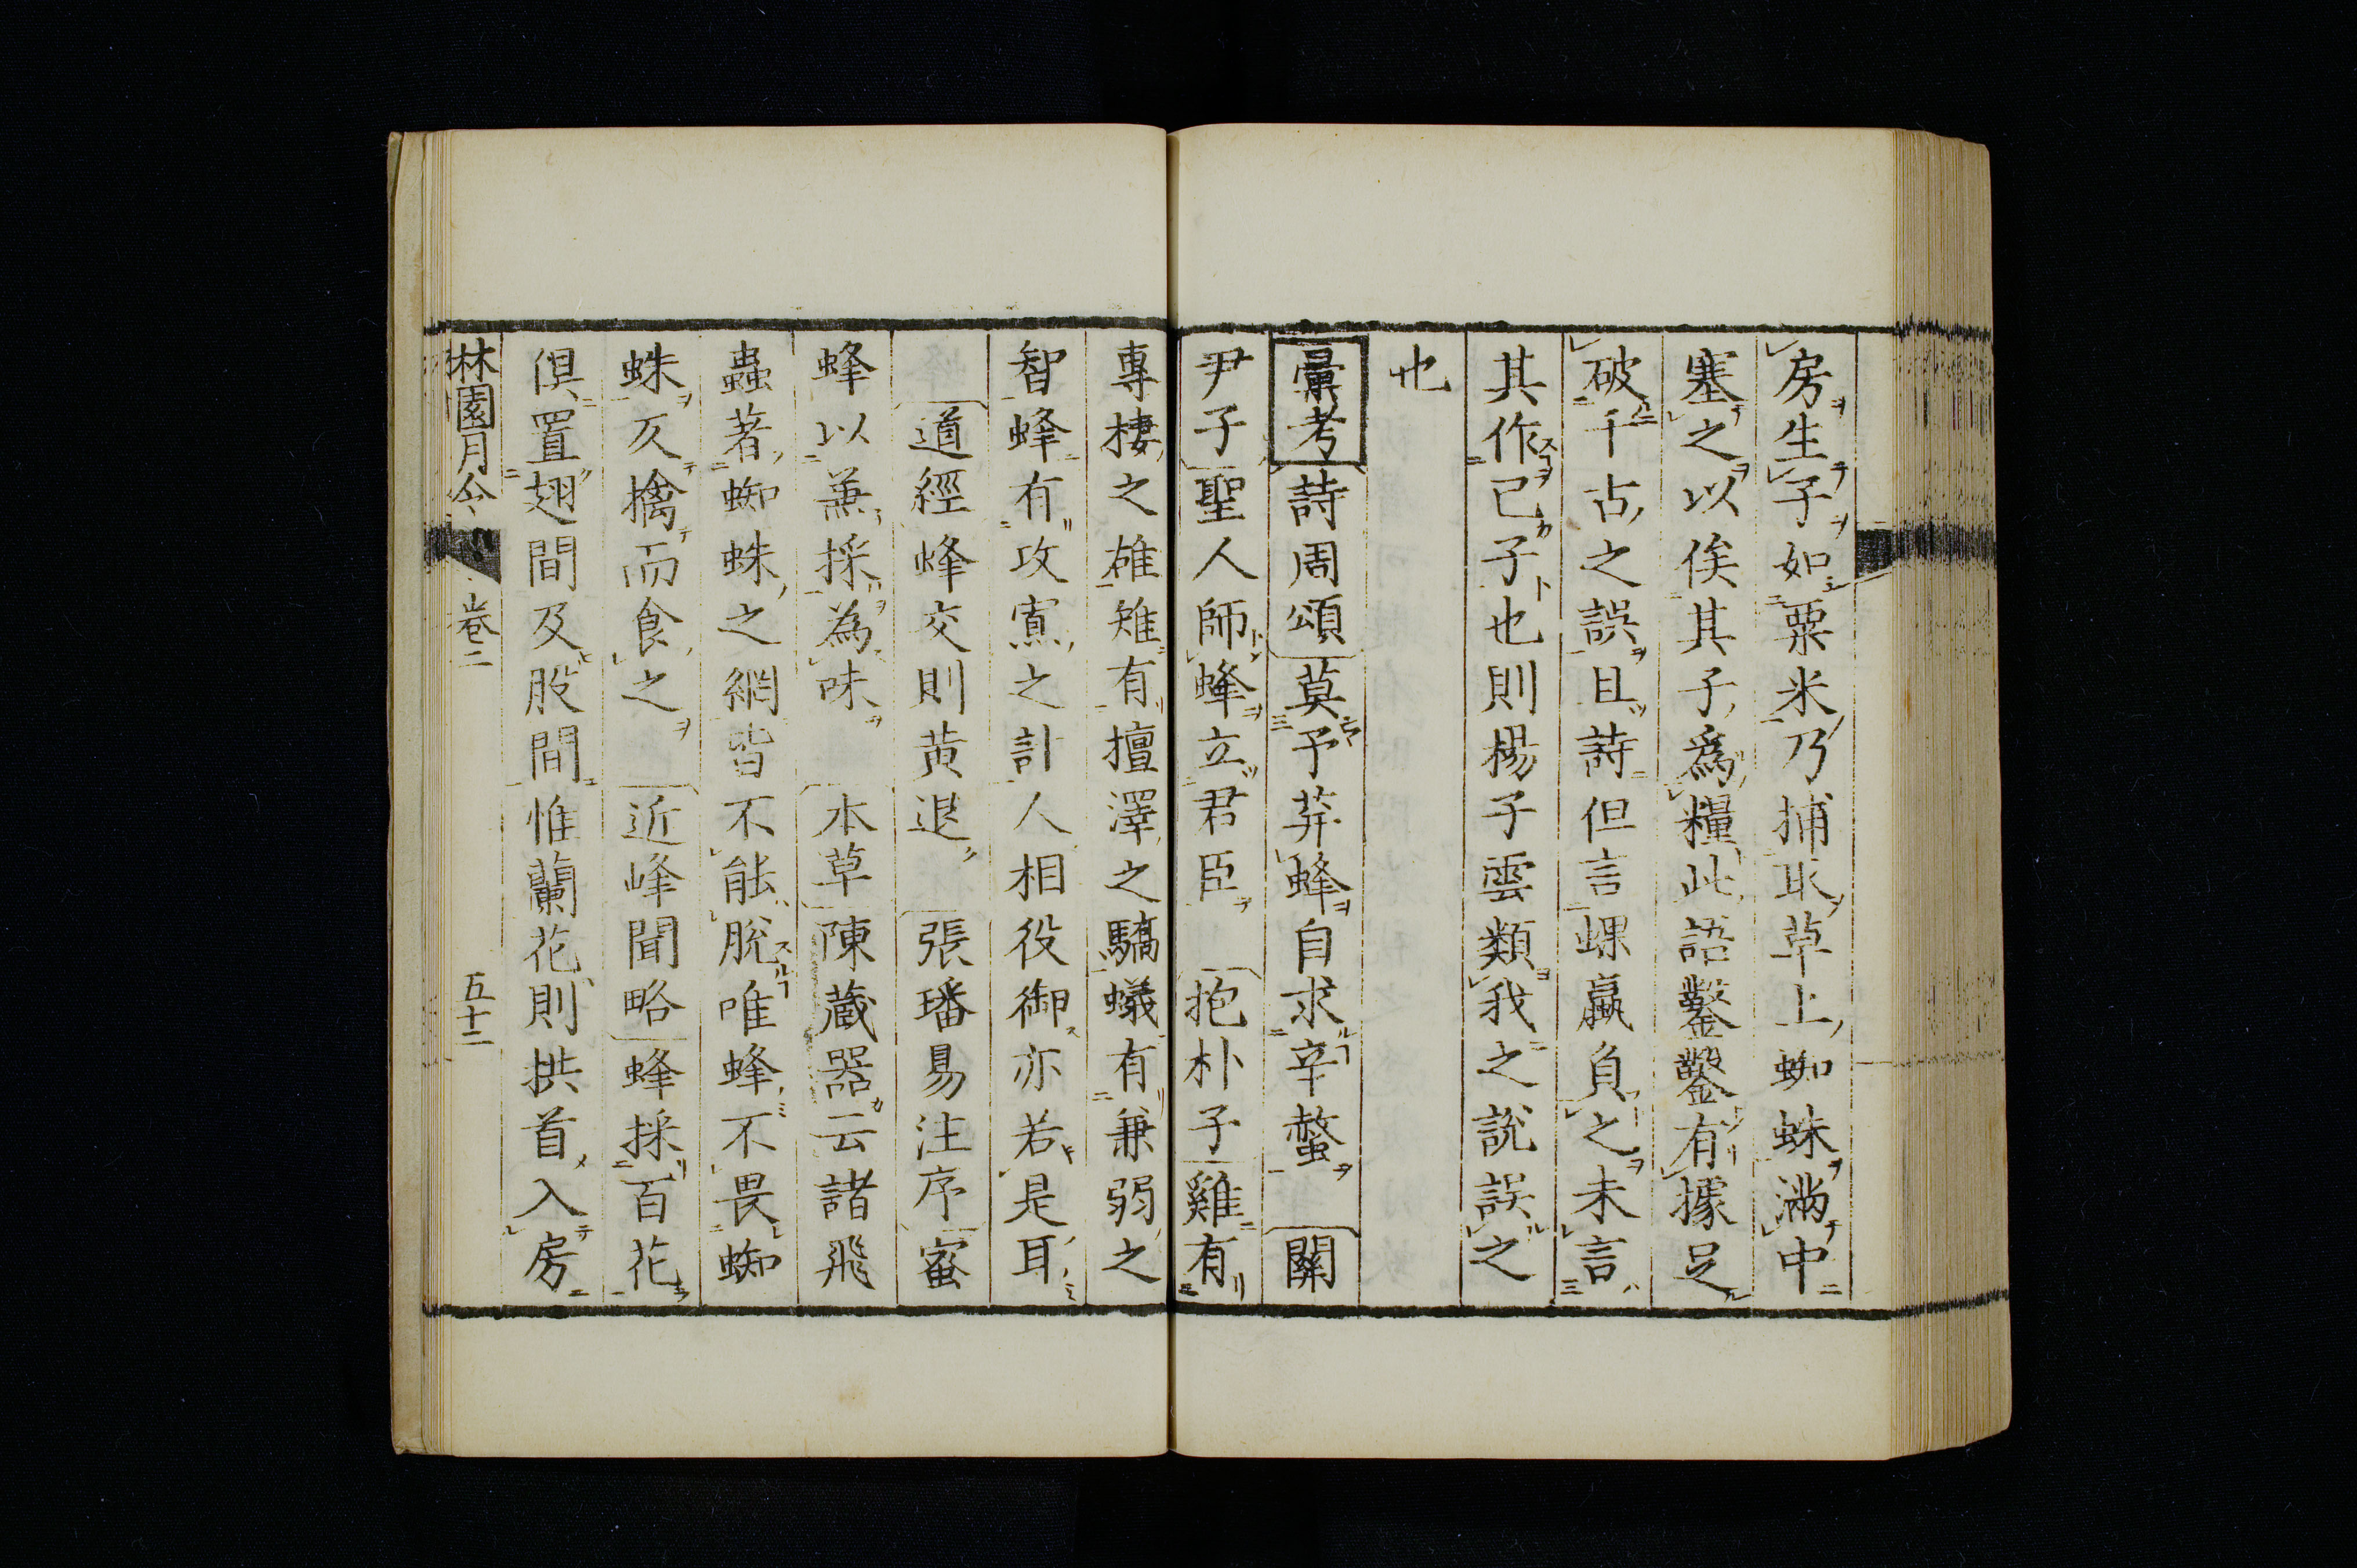 房生子如粟米乃捕取草上蜘蛛滿中
塞之以俟其子爲糧此語鑿鑿有據足
破千古之誤且詩但言螺蠃負之未言
其作己子也則楊子雲類我之説誤之
也
彙考詩周頌莫予荓蜂自求辛螫 關
尹子聖人師蜂立君臣 抱朴子雞有
專棲之雄雉有擅澤之驕蟻有兼弱之
智蜂有攻寡之計人相役御亦若是耳
道經蜂交則黄退 張璠易注序蜜
蜂以兼採為味 本草陳蔵器云諸飛
蟲著蜘蛛之網皆不能脱唯蜂不畏蜘
蛛又擒而食之 近峰聞略蜂採百花
倶置翅間及股間惟蘭花則拱首入房
林園月令 卷二 五十二